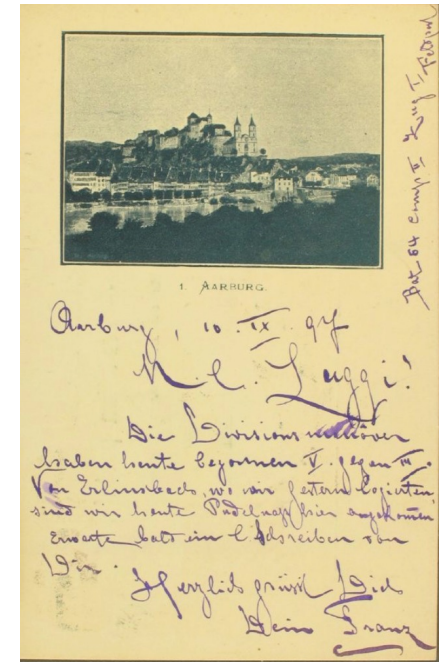 Bat 64 Comp II Zug I, Feldpost
1. AARBURG.
Aarburg, 10. IX. 97
M. l. Luggi!
Die Divisionsmanöver
haben heute begonnen V. gegen III.
Von Erlinsbach, wo wir gestern logierten
sind wir heute Pudelnass hier angekommen
Erwarte bald ein l. Schreiben von
Dir.
Herzlich grüsst Dich
Dein Franz